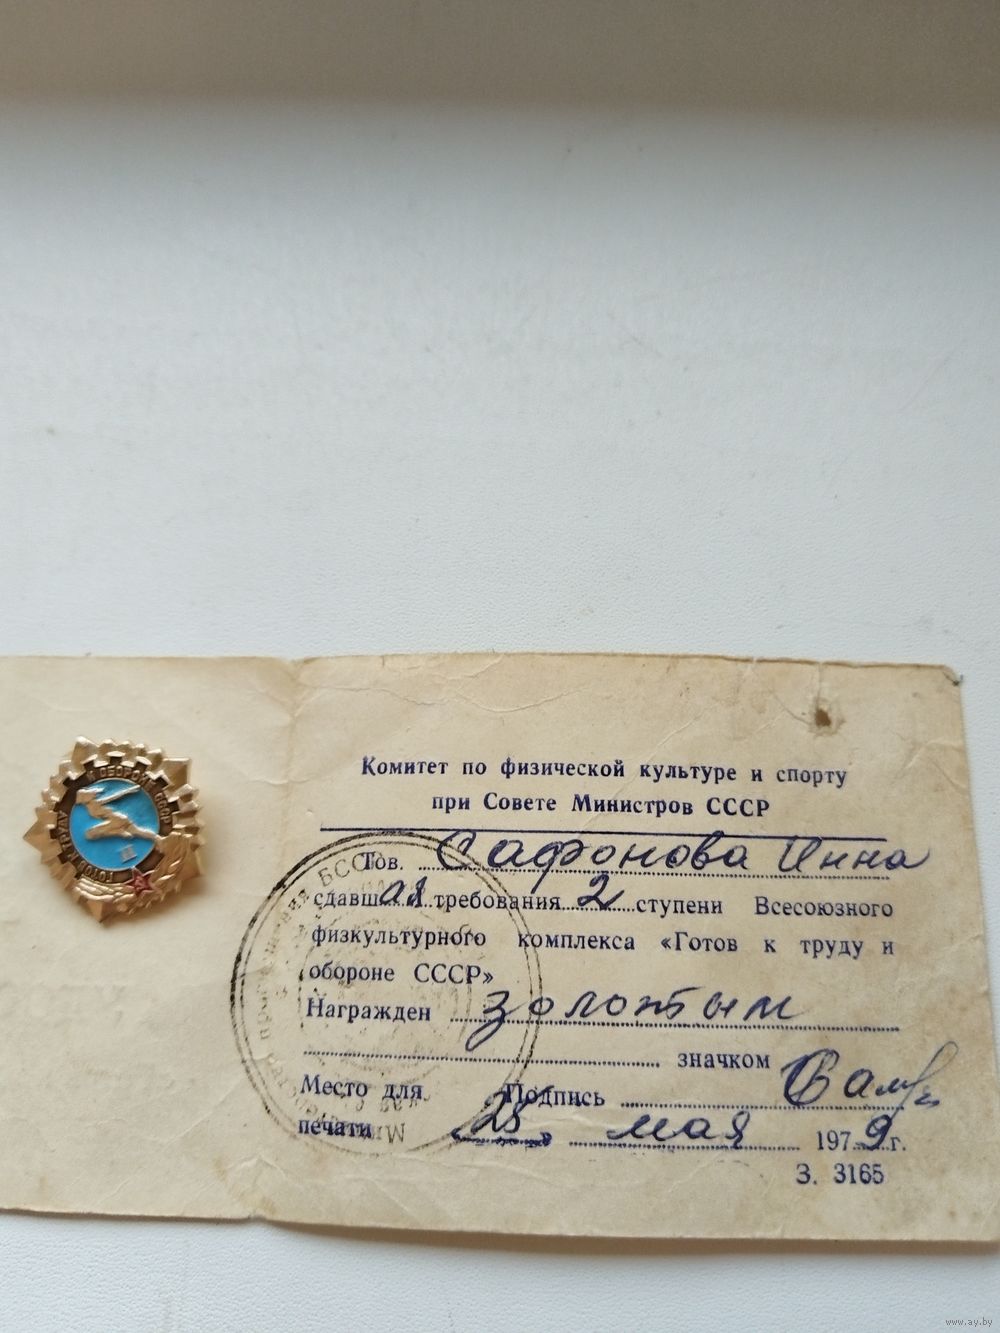 К ОБОРОНЕ СССР
ГОТОВ К ТРУДУ
II
Комитет по физической культуре и спорту
при Совете Министров СССР
Тов. Сафонова Инна
сдавшая требования 2 ступени Всесоюзного
физкультурного комплекса «Готов к труду и
обороне СССР»
Награжден золотым
значком
Место для Подпись
печати «25» мая 1979 г.
З. 3165
БССР
www.ay.by